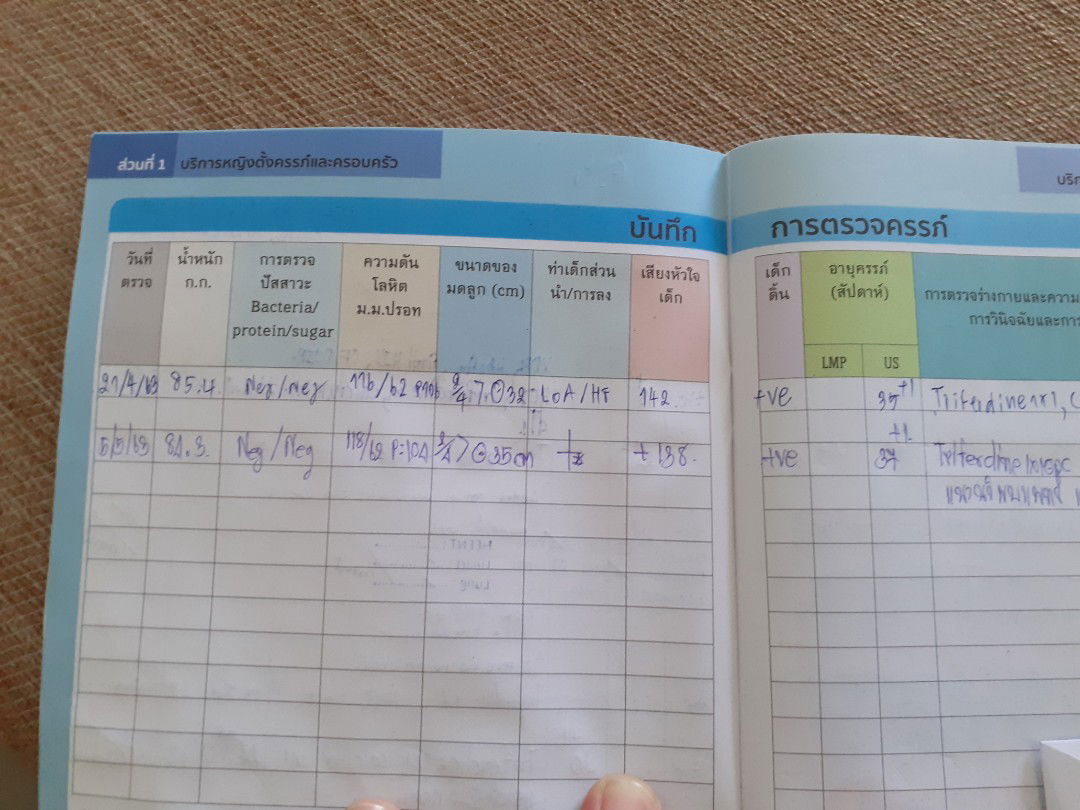 ส่วนที่ 1 บริการหญิงตั้งครรภ์และครอบครัว
บริก
บันทึก การตรวจครรภ์
วันที่
ตรวจ
น้ำหนัก
ก.ก.
การตรวจ
ปัสสาวะ
Bacteria/
protein/sugar
ความดัน
โลหิต
ม.ม.ปรอท
ขนาดของ
มดลูก (cm)
ท่าเด็กส่วน
นำ/การลง
เสียงหัวใจ
เด็ก
เด็ก
ดิ้น
อายุครรภ์
(สัปดาห์)
LMP US
การตรวจร่างกายและความ
การวินิจฉัยและการ
21/4/63 85.4 Neg/Neg 116/62 P106 3/4 > 32 LOA/HF 142 +ve 35+1
5/5/63 84.3 Neg/Neg 118/62 P=104 3/4 > 35cm +138 +ve 37+1